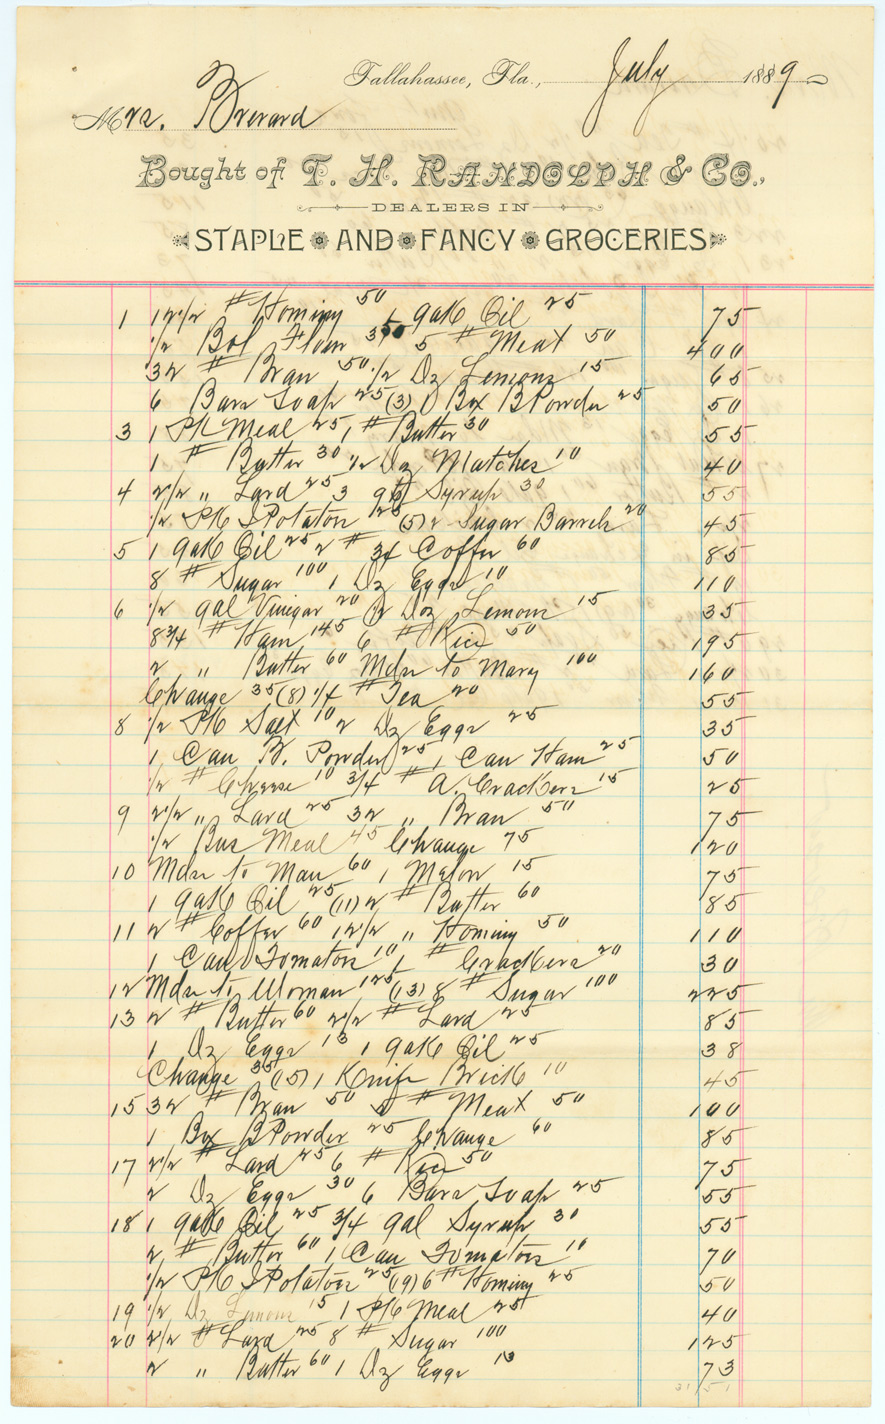 Tallahassee, Fla., July 1889
Mrs. Brevard
Bought of T. H. RANDOLPH & CO.,
DEALERS IN
STAPLE AND FANCY GROCERIES
1 12 1/2 # Hominy 50 1 gal Oil 25 75
1/2 Bbl Flour 350 5 # Meat 50 400
32 # Bran 50 1/2 Dz Lemons 15 65
6 Bars Soap 25 (3) 1 Bx B Powder 25 50
3 1 Pk Meal 25 1 # Butter 30 55
1 # Butter 30 1/2 Dz Matches 10 40
4 2 1/2 " Lard 25 3 qts Syrup 30 55
1/2 Pk I Potatoes 25 (5) 2 Sugar Barrels 20 45
5 1 gal Oil 25 2 # Coffee 60 85
8 # Sugar 100 1 Dz Eggs 10 110
6 1/2 gal Vinigar 20 1/2 Doz Lemons 15 35
8 3/4 # Ham 145 6 # Rice 50 195
2 " Butter 60 Mdse to Mary 100 160
Change 35 (8) 1/4 # Tea 20 55
8 1/2 Pk Salt 10 2 Dz Eggs 25 35
1 Can B. Powder 25 1 Can Ham 25 50
1/2 # Cheese 10 3/4 # A. Crackers 15 25
9 2 1/2 " Lard 25 32 " Bran 50 75
1/2 Bus Meal 45 Change 75 120
10 Mdse to Man 60 1 Melon 15 75
1 gal Oil 25 (11) 2 # Butter 60 85
11 2 # Coffee 60 12 1/2 " Hominy 50 110
1 Can Tomatoes 10 1 # Crackers 20 30
12 Mdse to Woman 125 (13) 8 # Sugar 100 225
13 2 # Butter 60 2 1/2 # Lard 25 85
1 Dz Eggs 13 1 gal Oil 25 38
Change 35 (15) 1 Knife Brick 10 45
15 32 # Bran 50 5 # Meat 50 100
1 Bx B Powder 25 Change 60 85
17 2 1/2 # Lard 25 6 # Rice 50 75
2 Dz Eggs 30 6 Bars Soap 25 55
18 1 gal Oil 25 3/4 gal Syrup 30 55
2 # Butter 60 1 Can Tomatoes 10 70
1/2 Pk I Potatoes 25 (19) 6 # Hominy 25 50
19 1/2 Dz Lemons 15 1 Pk Meal 25 40
20 2 1/2 # Lard 25 8 # Sugar 100 125
2 " Butter 60 1 Dz Eggs 13 73
31 51